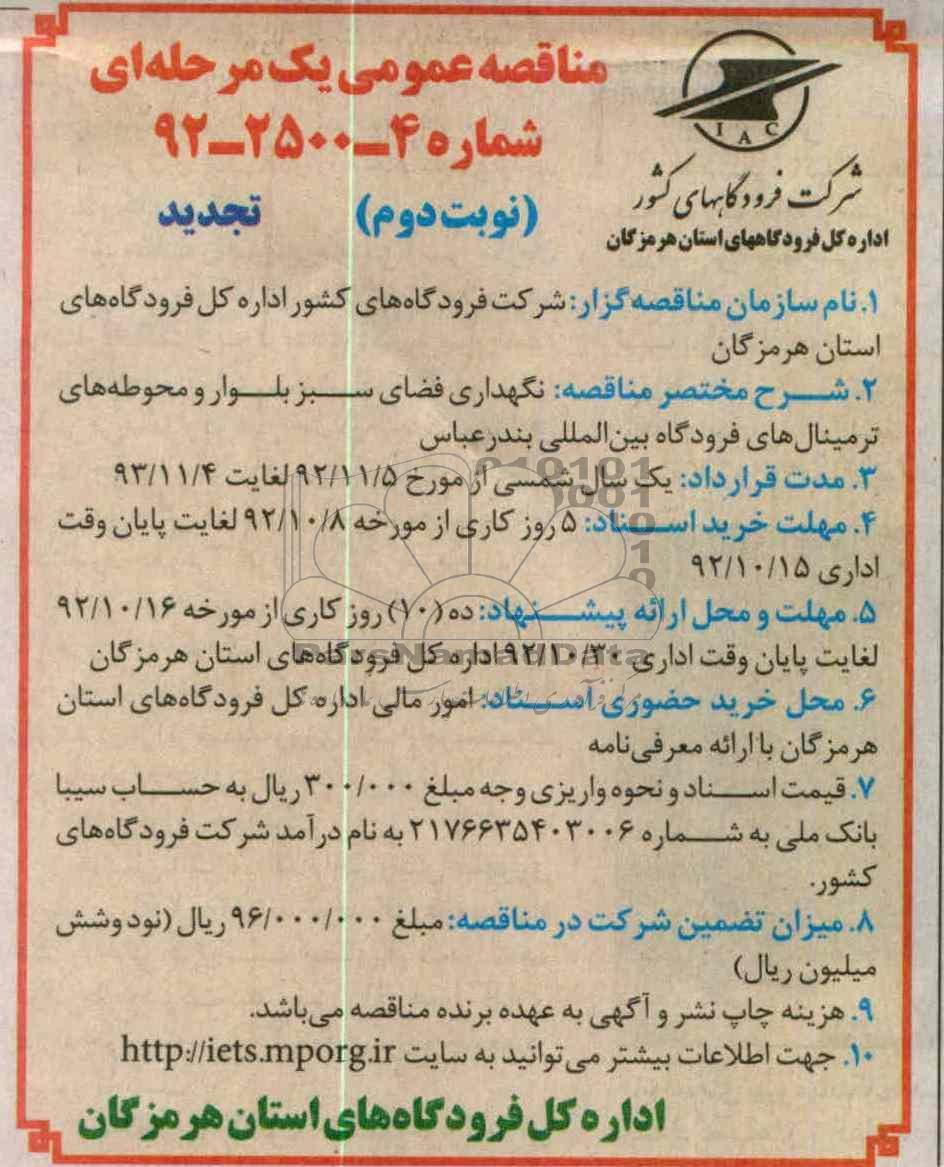 مناقصه عمومی یک مرحله‌ای
شماره ۴ــ۲۵۰۰ــ۹۲
(نوبت دوم) تجدید
IAC
شرکت فرودگاههای کشور
اداره کل فرودگاههای استان هرمزگان
۱. نام سازمان مناقصه گزار: شرکت فرودگاه‌های کشور اداره کل فرودگاه‌های
استان هرمزگان
۲. شــرح مختصر مناقصه: نگهداری فضای ســبز بلــوار و محوطه‌های
ترمینال‌های فرودگاه بین‌المللی بندرعباس
۳. مدت قرارداد: یک سال شمسی از مورخ ۹۲/۱۱/۵ لغایت ۹۳/۱۱/۴
۴. مهلت خرید اســناد: ۵ روز کاری از مورخه ۹۲/۱۰/۸ لغایت پایان وقت
اداری ۹۲/۱۰/۱۵
۵. مهلت و محل ارائه پیشــنهاد: ده (۱۰) روز کاری از مورخه ۹۲/۱۰/۱۶
لغایت پایان وقت اداری ۹۲/۱۰/۳۰ اداره کل فرودگاه‌های استان هرمزگان
۶. محل خرید حضوری اســناد: امور مالی اداره کل فرودگاه‌های استان
هرمزگان با ارائه معرفی‌نامه
۷. قیمت اســناد و نحوه واریزی وجه مبلغ ۳۰۰/۰۰۰ ریال به حســاب سیبا
بانک ملی به شــماره ۲۱۷۶۶۳۵۴۰۳۰۰۶ به نام درآمد شرکت فرودگاه‌های
کشور.
۸. میزان تضمین شرکت در مناقصه: مبلغ ۹۶/۰۰۰/۰۰۰ ریال (نود وشش
میلیون ریال)
۹. هزینه چاپ نشر و آگهی به عهده برنده مناقصه می‌باشد.
۱۰. جهت اطلاعات بیشتر می‌توانید به سایت http://iets.mporg.ir
اداره کل فرودگاه‌های استان هرمزگان
ParsNamadData